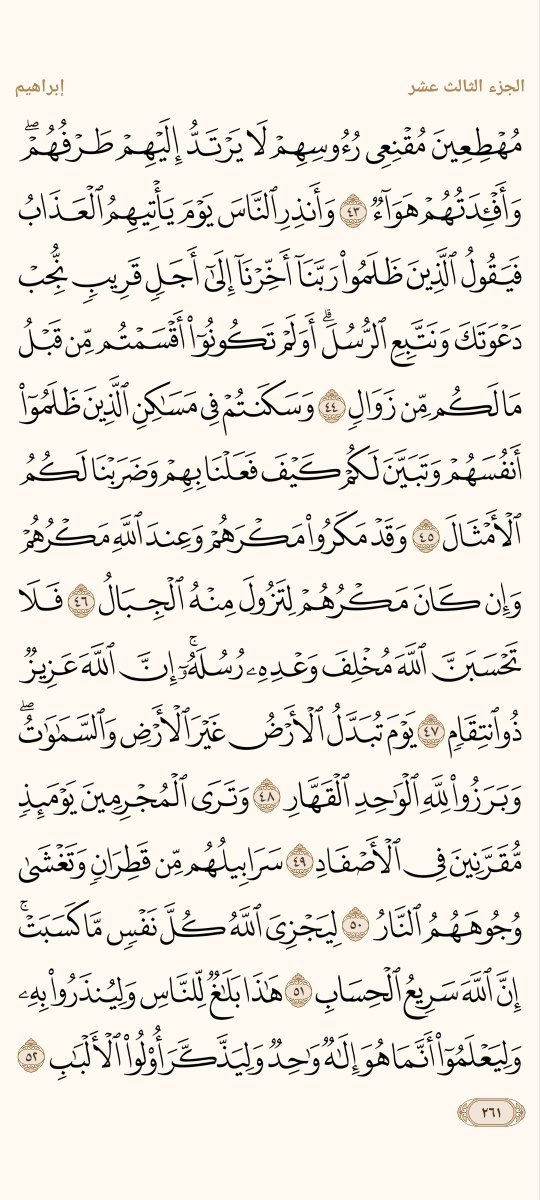 الجزء الثالث عشر
إبراهيم
مُهْطِعِينَ مُقْنِعِى رُءُوسِهِمْ لَا يَرْتَدُّ إِلَيْهِمْ طَرْفُهُمْ ۖ
وَأَفْـِٔدَتُهُمْ هَوَآءٌ ٤٣ وَأَنذِرِ ٱلنَّاسَ يَوْمَ يَأْتِيهِمُ ٱلْعَذَابُ
فَيَقُولُ ٱلَّذِينَ ظَلَمُوا۟ رَبَّنَآ أَخِّرْنَآ إِلَىٰٓ أَجَلٍ قَرِيبٍ نُّجِبْ
دَعْوَتَكَ وَنَتَّبِعِ ٱلرُّسُلَ ۗ أَوَلَمْ تَكُونُوٓا۟ أَقْسَمْتُم مِّن قَبْلُ
مَا لَكُم مِّن زَوَالٍ ٤٤ وَسَكَنتُمْ فِى مَسَـٰكِنِ ٱلَّذِينَ ظَلَمُوٓا۟
أَنفُسَهُمْ وَتَبَيَّنَ لَكُمْ كَيْفَ فَعَلْنَا بِهِمْ وَضَرَبْنَا لَكُمُ
ٱلْأَمْثَالَ ٤٥ وَقَدْ مَكَرُوا۟ مَكْرَهُمْ وَعِندَ ٱللَّهِ مَكْرُهُمْ
وَإِن كَانَ مَكْرُهُمْ لِتَزُولَ مِنْهُ ٱلْجِبَالُ ٤٦ فَلَا
تَحْسَبَنَّ ٱللَّهَ مُخْلِفَ وَعْدِهِۦ رُسُلَهُۥٓ ۚ إِنَّ ٱللَّهَ عَزِيزٌ
ذُو ٱنتِقَامٍ ٤٧ يَوْمَ تُبَدَّلُ ٱلْأَرْضُ غَيْرَ ٱلْأَرْضِ وَٱلسَّمَـٰوَٰتُ ۖ
وَبَرَزُوا۟ لِلَّهِ ٱلْوَٰحِدِ ٱلْقَهَّارِ ٤٨ وَتَرَى ٱلْمُجْرِمِينَ يَوْمَئِذٍ
مُّقَرَّنِينَ فِى ٱلْأَصْفَادِ ٤٩ سَرَابِيلُهُم مِّن قَطِرَانٍ وَتَغْشَىٰ
وُجُوهَهُمُ ٱلنَّارُ ٥٠ لِيَجْزِىَ ٱللَّهُ كُلَّ نَفْسٍ مَّا كَسَبَتْ ۚ
إِنَّ ٱللَّهَ سَرِيعُ ٱلْحِسَابِ ٥١ هَـٰذَا بَلَـٰغٌ لِّلنَّاسِ وَلِيُنذَرُوا۟ بِهِۦ
وَلِيَعْلَمُوٓا۟ أَنَّمَا هُوَ إِلَـٰهٌ وَٰحِدٌ وَلِيَذَّكَّرَ أُو۟لُوا۟ ٱلْأَلْبَـٰبِ ٥٢
٢٦١